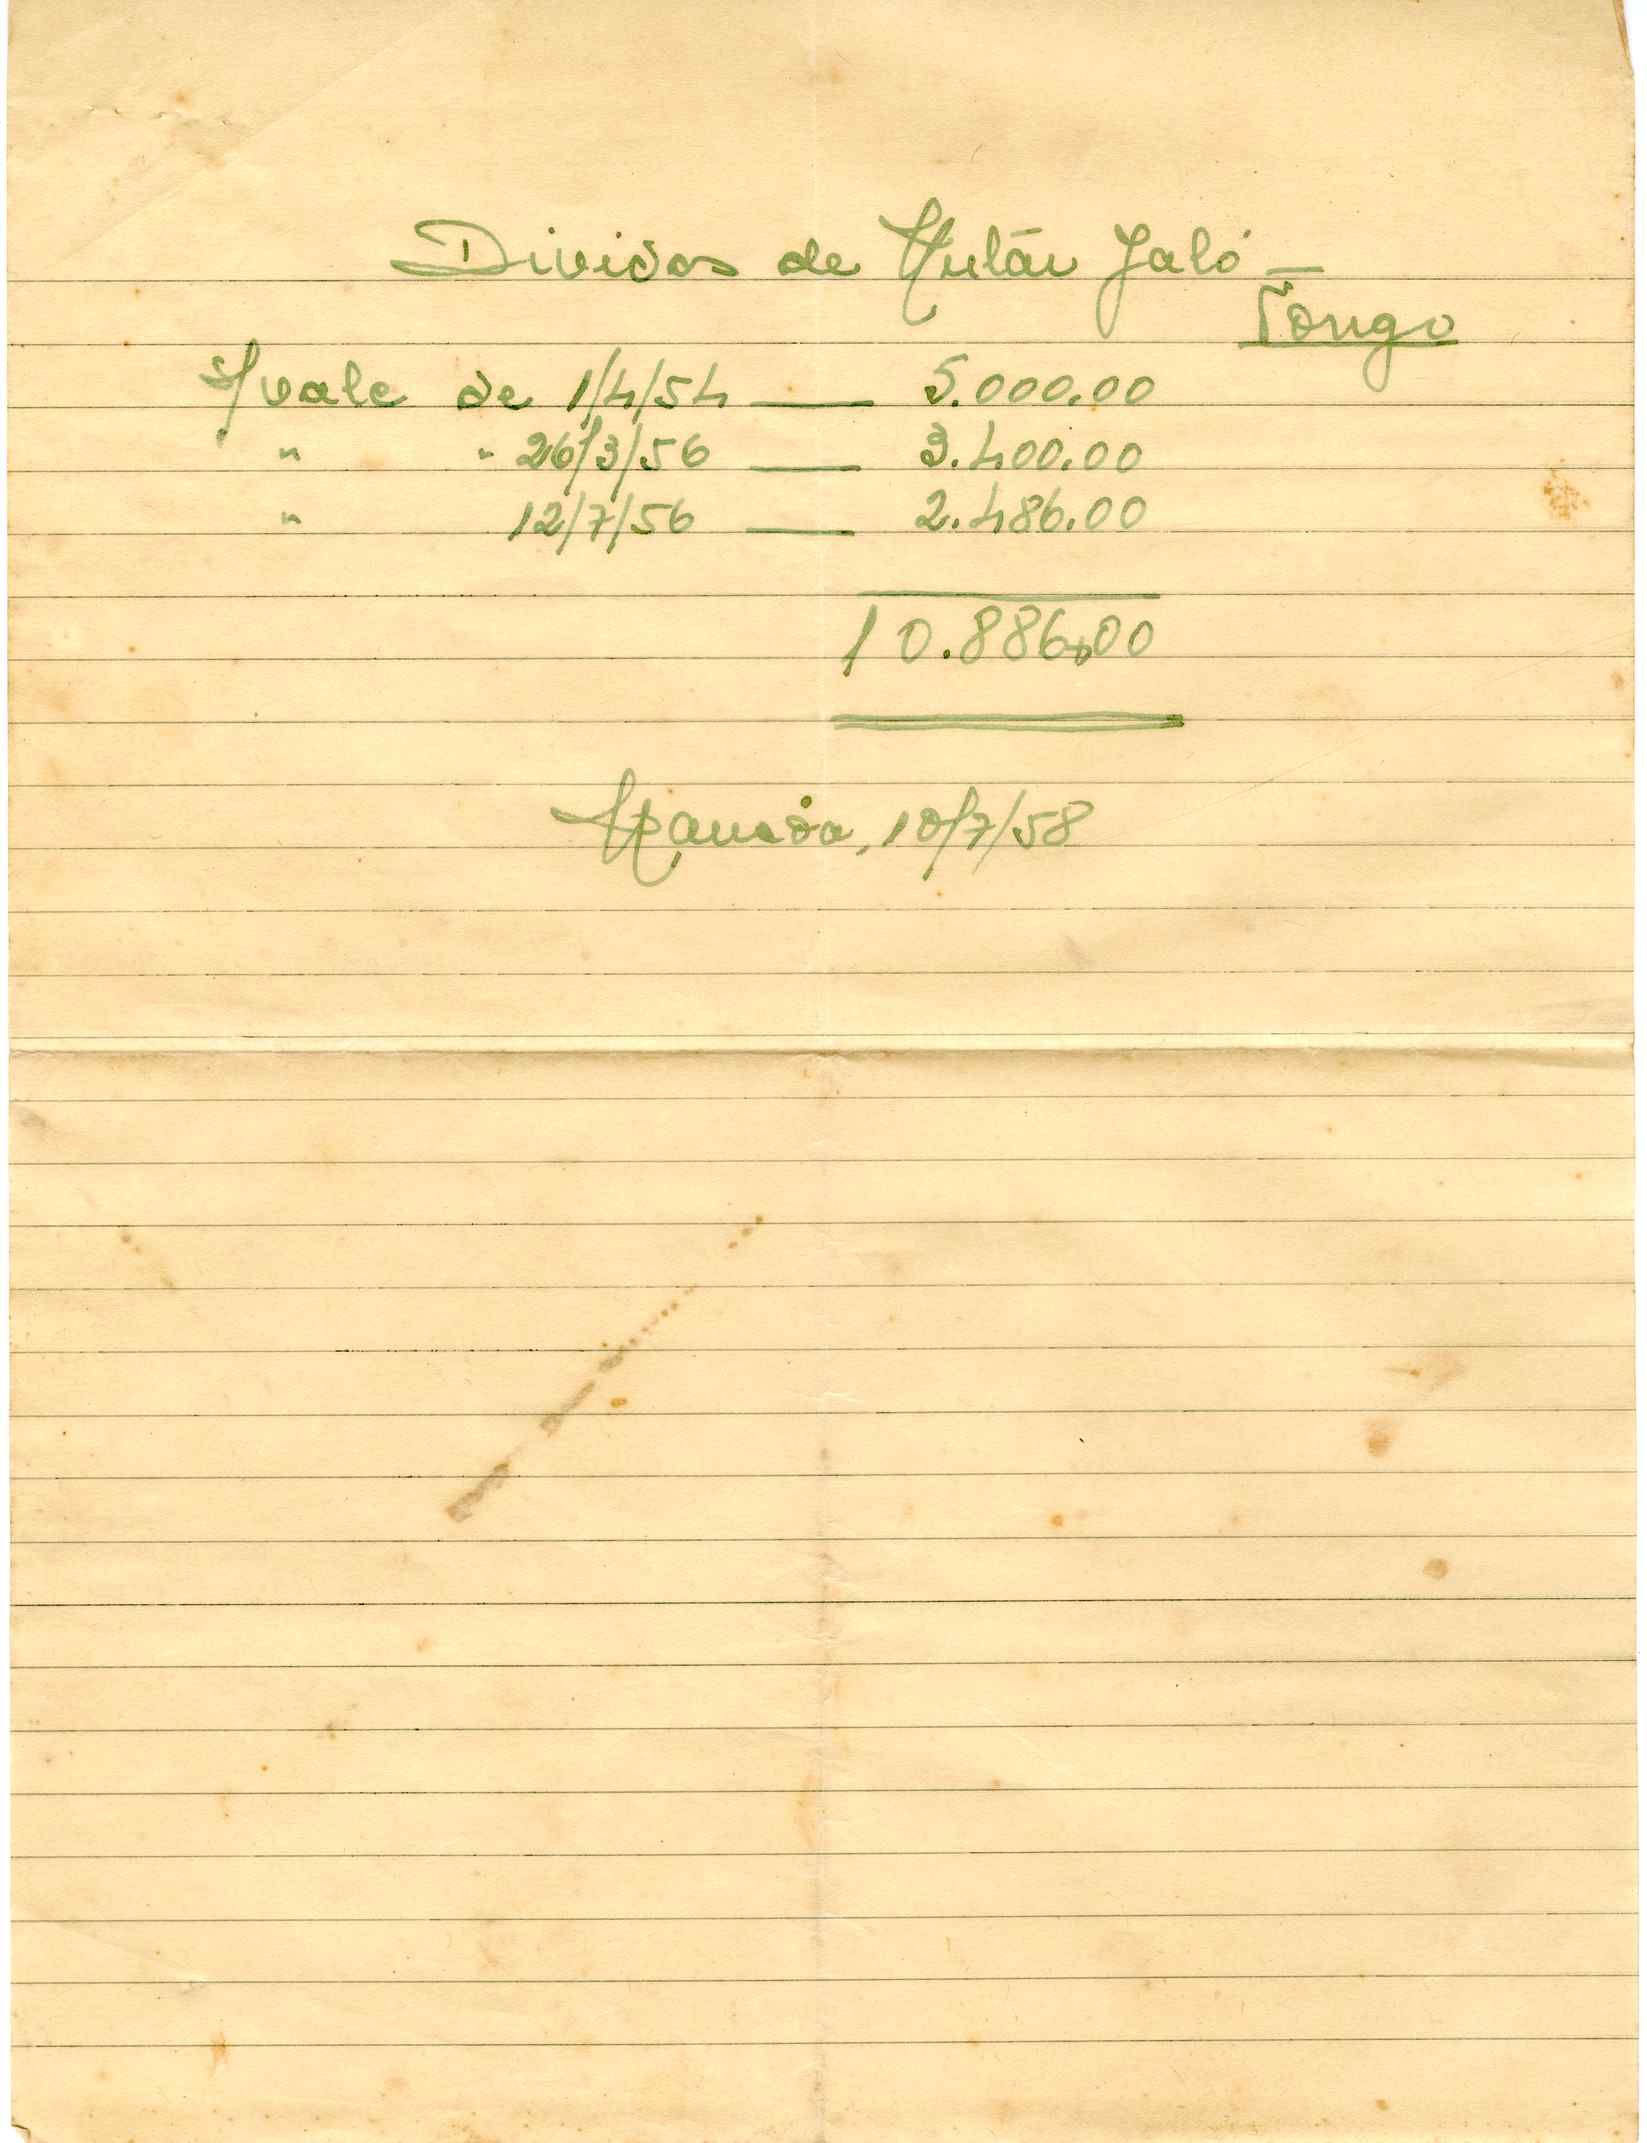 Dividas de Mutár Jaló —
Congo
S/vale de 1/4/54 — 5.000.00
" " 26/3/56 — 3.400.00
" 12/7/56 — 2.486.00
10.886,00
10/7/58